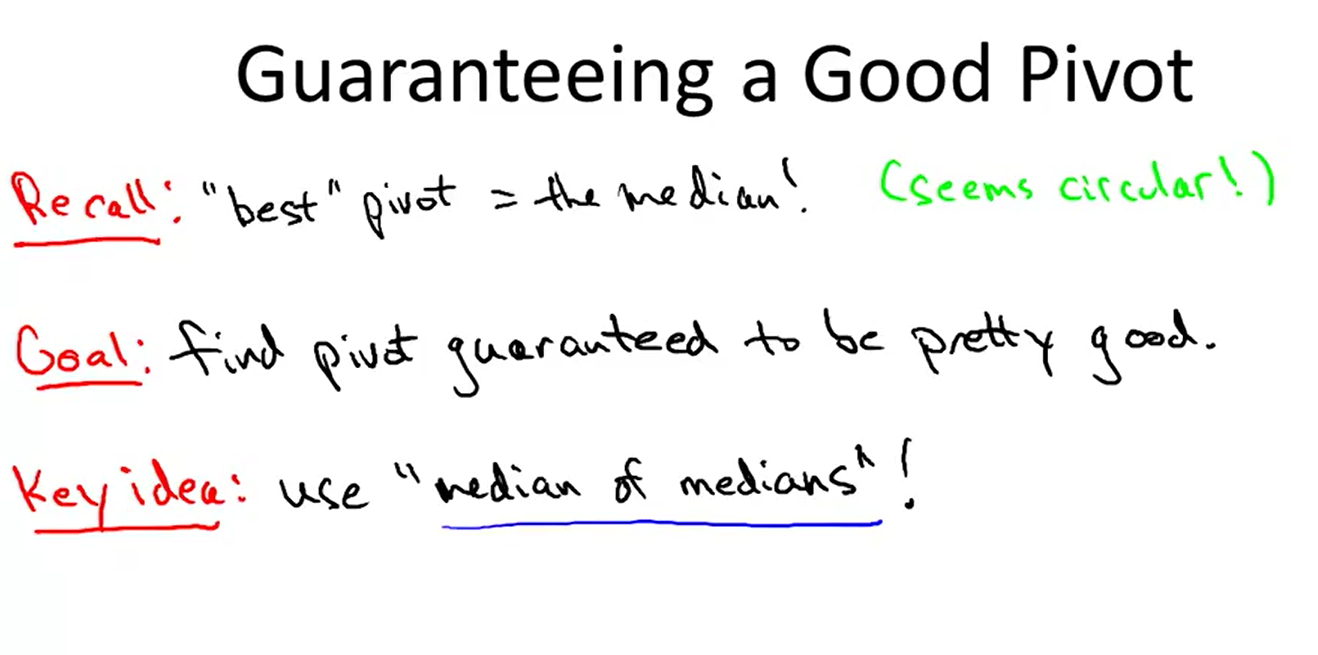 Guaranteeing a Good Pivot
Recall: "best" pivot = the median! (seems circular!)
Goal: find pivot guaranteed to be pretty good.
Key idea: use "median of medians"!